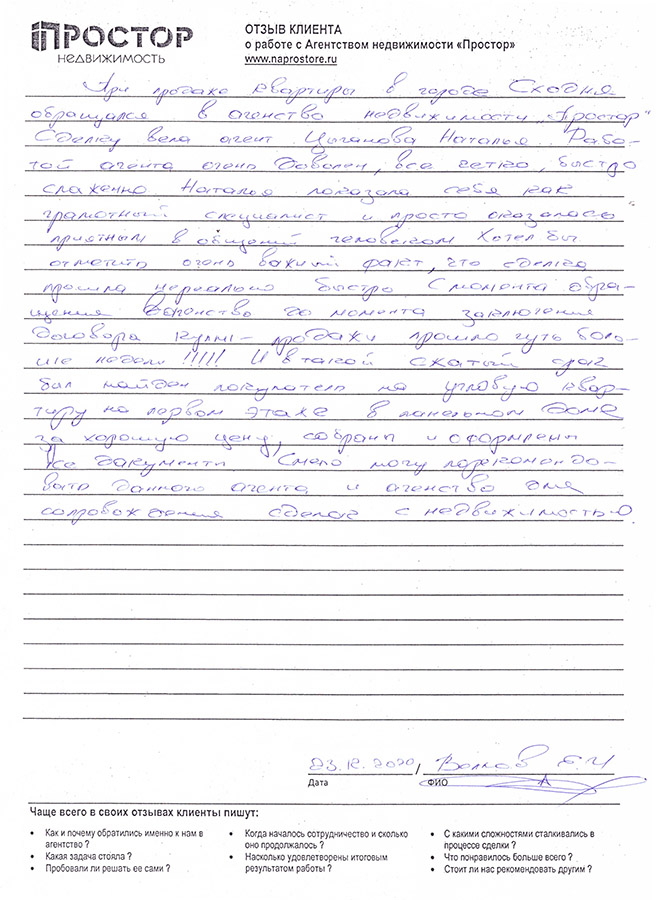 ПРОСТОР
НЕДВИЖИМОСТЬ
ОТЗЫВ КЛИЕНТА
о работе с Агентством недвижимости «Простор»
www.naprostore.ru
При продаже квартиры в городе Сходня
обращался в агенство недвижимости „Простор"
Сделку вела агент Цыганова Наталья. Рабо-
той агента очень доволен, все четко, быстро
слаженно. Наталья показала себя как
грамотный специалист и просто оказалась
приятным в общении человеком. Хотел бы
отметить очень важный факт, что сделка
прошла нереально быстро. С момента обра-
щения в агенство до момента заключения
Договора купли-продажи прошло чуть боль-
ше недели !!!!! И в такой сжатый срок
был найден покупатель на угловую квар-
тиру на первом этаже в панельном доме
за хорошую цену, собраны и оформлены
все документы. Смело могу порекомендо-
вать данного агента и агенство для
сопровождения сделок с недвижимостью
23.12.2020 / Волков Е И
Дата ФИО
Чаще всего в своих отзывах клиенты пишут:
• Как и почему обратились именно к нам в агентство ?
• Какая задача стояла ?
• Пробовали ли решать ее сами ?
• Когда началось сотрудничество и сколько оно продолжалось ?
• Насколько удовлетворены итоговым результатом работы ?
• С какими сложностями сталкивались в процессе сделки ?
• Что понравилось больше всего ?
• Стоит ли нас рекомендовать другим ?